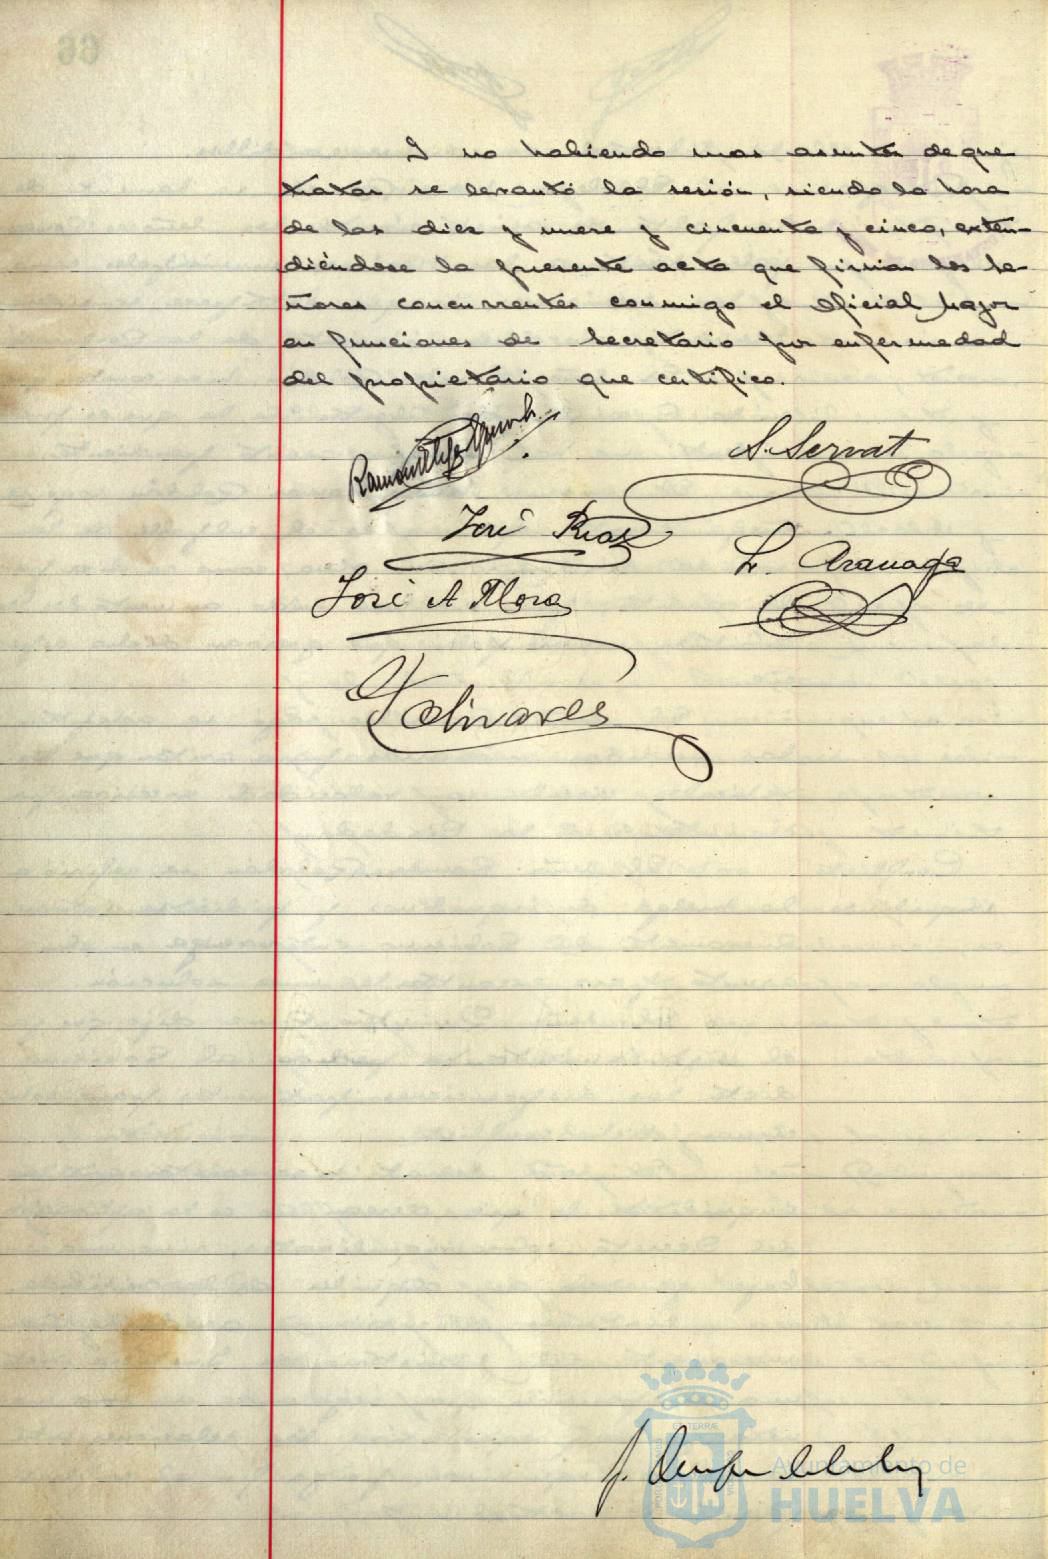 Y no habiendo mas asuntos de que
tratar se levantó la sesión, siendo la hora
de las diez y nueve y cincuenta y cinco, exten-
diéndose la presente acta que firman los se-
ñores concurrentes conmigo el Oficial Mayor
en funciones de Secretario por enfermedad
del propietario que certifico.
Ramón
S. Servat
José Ruiz
L. Aranaga
José A Mora
Olivares
Ayuntamiento de
HUELVA